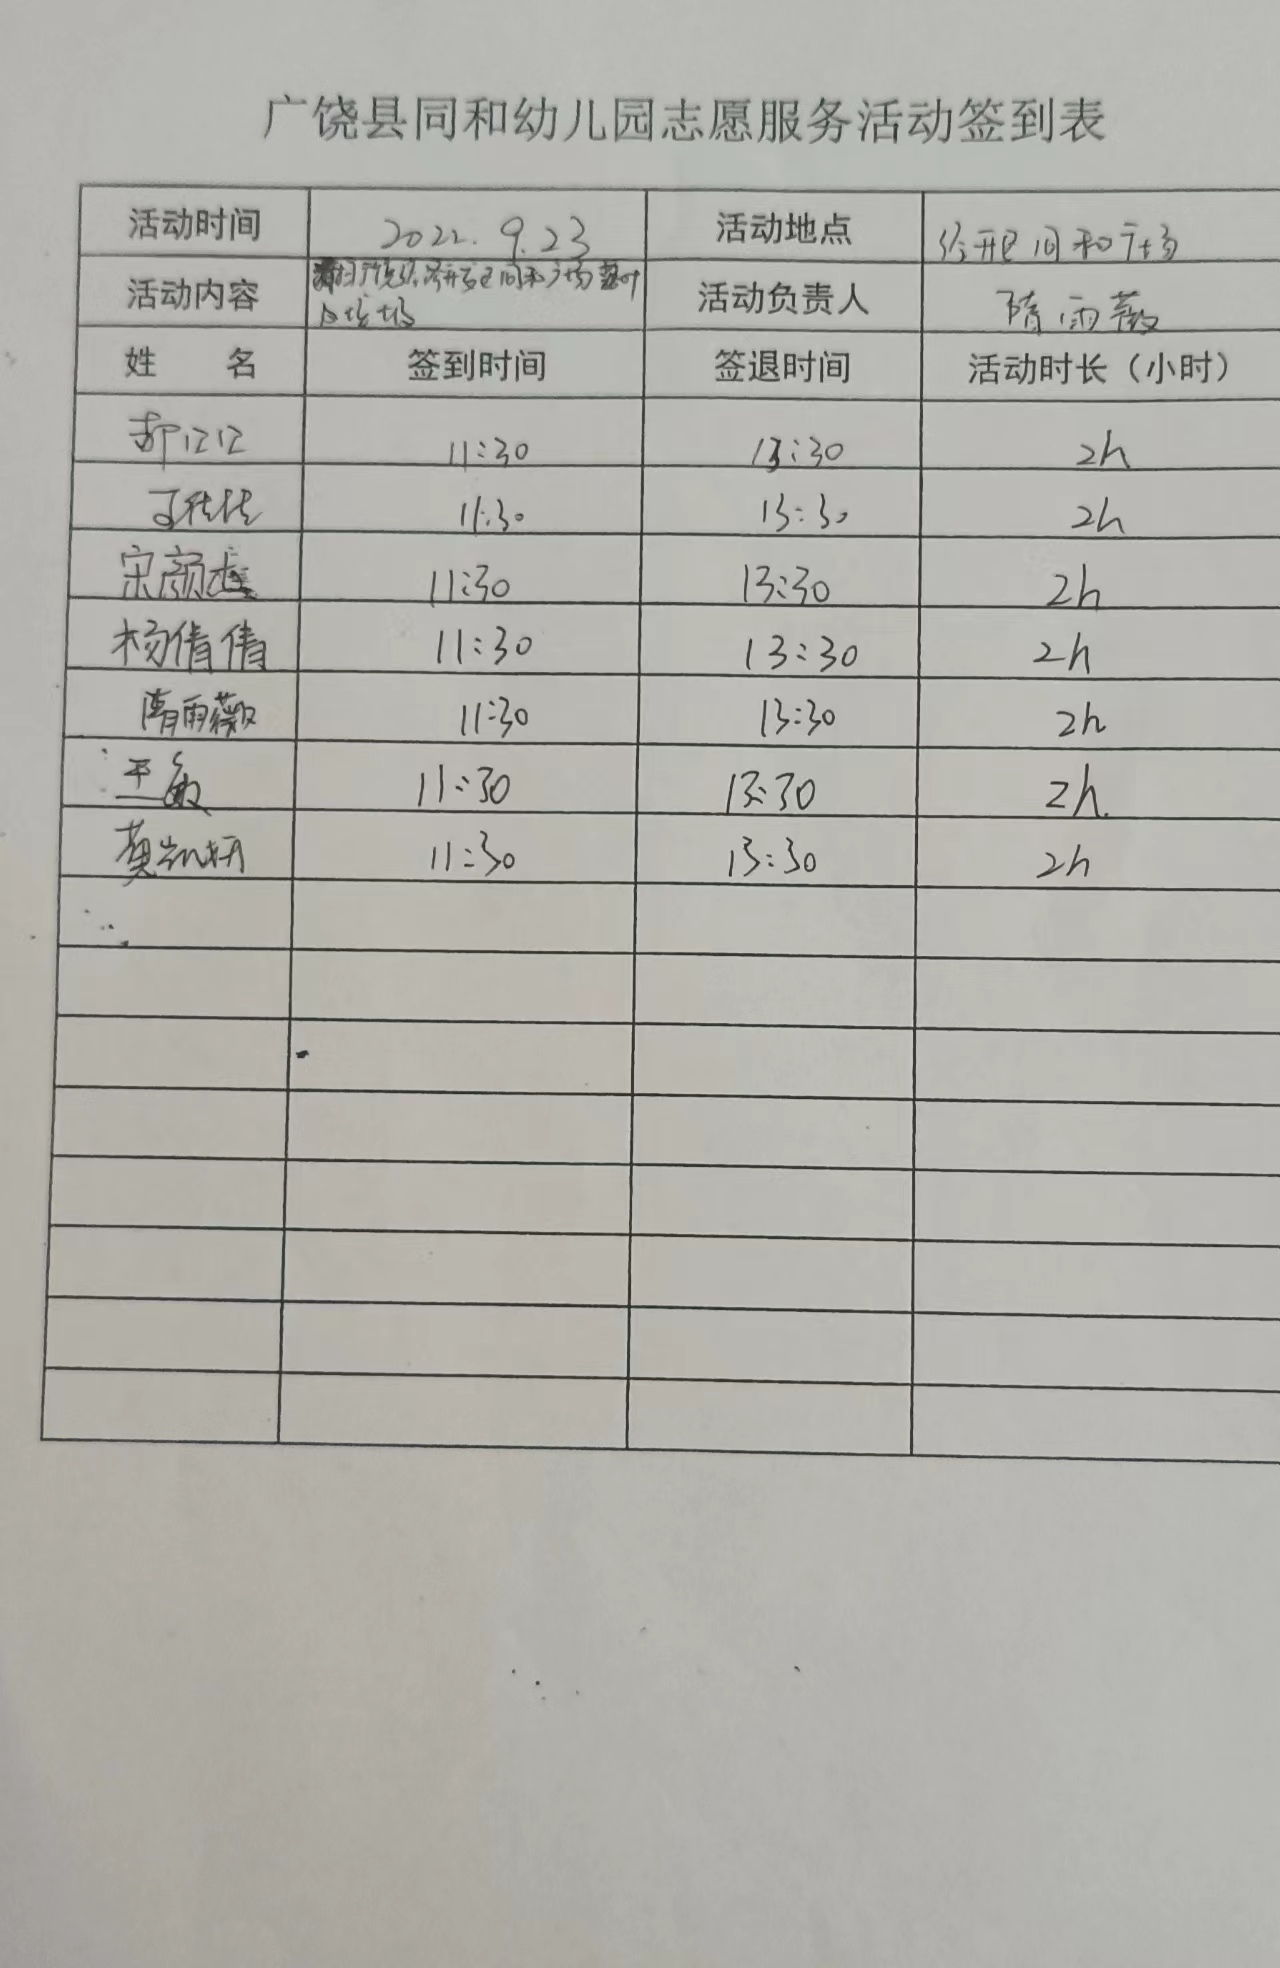 广饶县同和幼儿园志愿服务活动签到表
活动时间 2022.9.23 活动地点 经开区同和广场
活动内容 扫广饶经济开发区同和广场落叶 活动负责人 隋雨薇
及垃圾
姓 名 签到时间 签退时间 活动时长（小时）
11:30 13:30 2h
11:30 13:30 2h
宋颜 11:30 13:30 2h
杨倩倩 11:30 13:30 2h
隋雨薇 11:30 13:30 2h
王敏 11:30 13:30 2h
11:30 13:30 2h